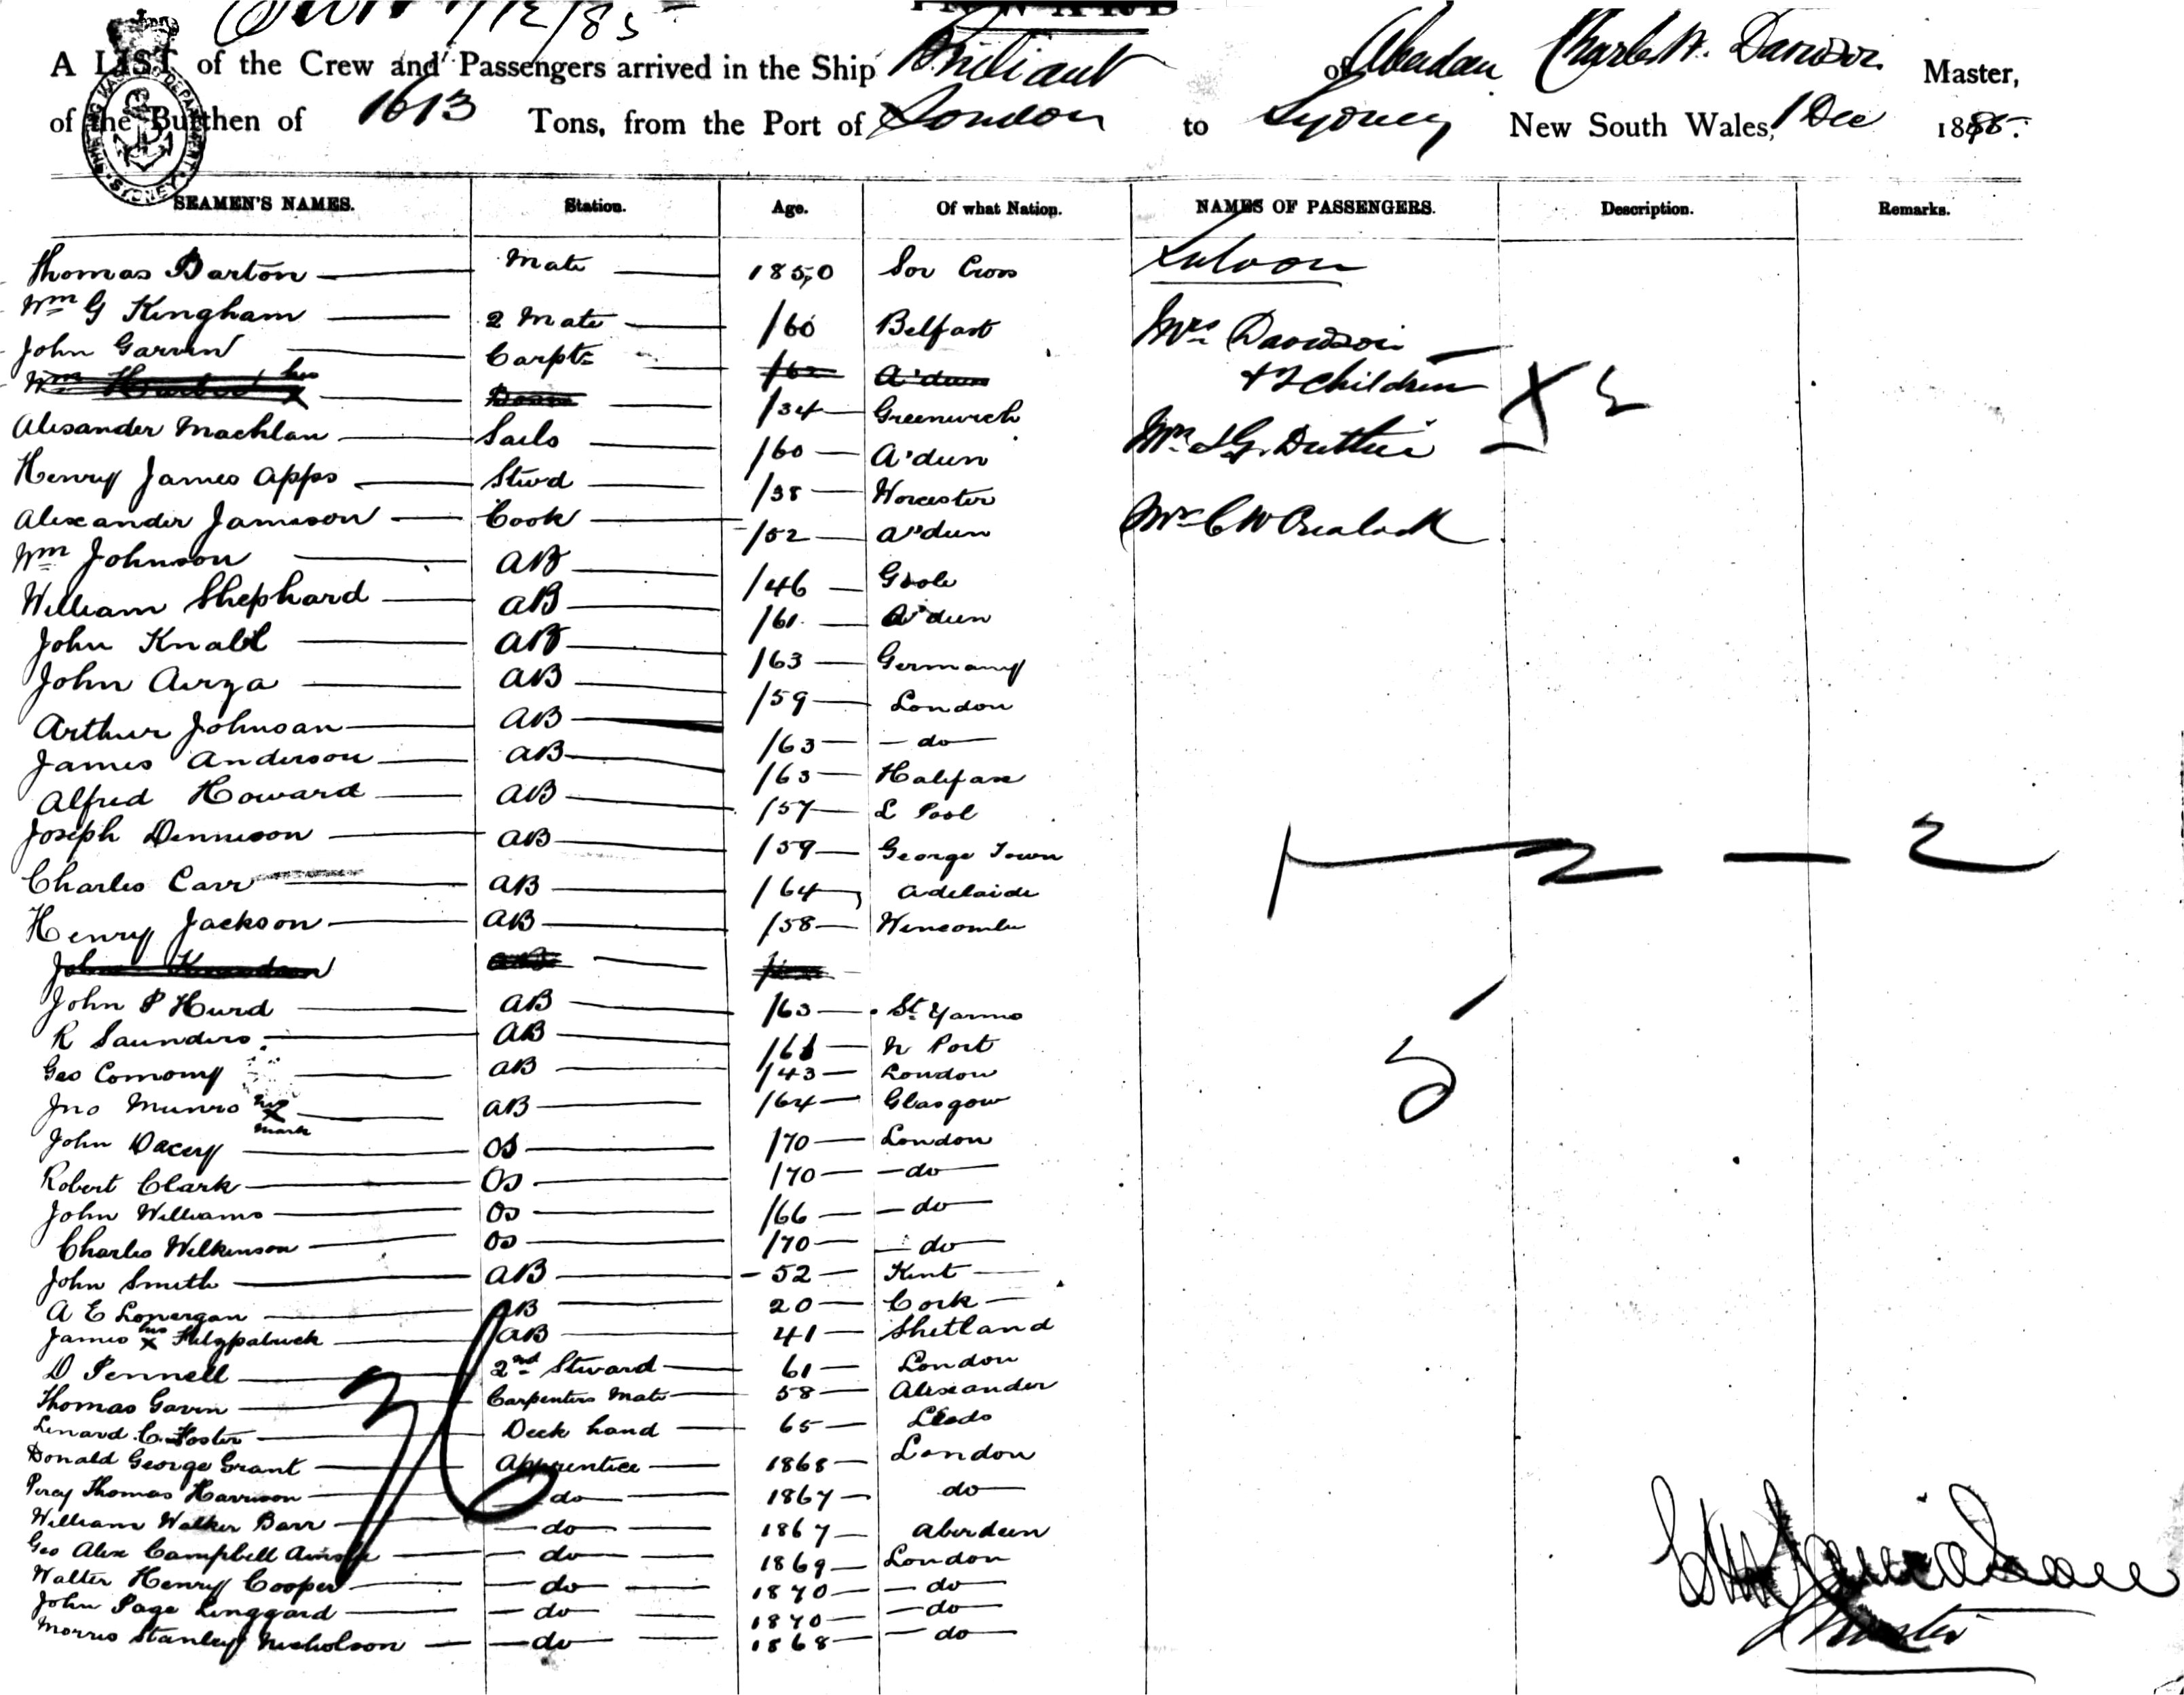 7/12/85
A LIST of the Crew and Passengers arrived in the Ship Brilliant of Aberdeen Charles W. Davidson Master,
of the Burthen of 1613 Tons, from the Port of London to Sydney New South Wales, 1 Dec 1885.
SEAMEN'S NAMES. Station. Age. Of what Nation. NAMES OF PASSENGERS. Description. Remarks.
Thomas Barton Mate 1850 Cross Saloon
Wm G Kingham 2 Mate /60 Belfast Mrs Davidson
John Garvin Carptr /62 A'deen + 2 Children
Wm his x /34 Greenwich
Alexander Machlan Sails /60 A'deen Mr J.G. Duthie
Henry James Apps Stwd /38 Worcester
Alexander Jamieson Cook /52 A'deen Mr C W
Wm Johnson AB /46 Goole
William Shephard AB /61 A'deen
John Knabl AB /63 Germany
John Airza AB /59 London
Arthur Johnson AB /63 do
James Anderson AB /63 Halifax
Alfred Howard AB /57 L Pool
Joseph Dennison AB /59 George Town
Charles Carr AB /64 Adelaide
Henry Jackson AB /58 Wincombe
John AB
John P Hurd AB /63 St
R Saunders AB /61 N Port
Geo Comomy AB /43 London
Jno Munro his x mark AB /64 Glasgow
John Dacey OS /70 London
Robert Clark OS /70 do
John Williams OS /66 do
Charles Wilkinson OS /70 do
John Smith AB 52 Kent
A E Lonergan AB 20 Cork
James his x Fitzpatrick AB 41 Shetland
D Pennell 2nd Steward 61 London
Thomas Gavin Carpenters Mate 58 Alexander
Lenard C. Foster Deck hand 65 Leeds
Donald George Grant Apprentice 1868 London
Percy Thomas Harrison do 1867 do
William Walker Barr do 1867 Aberdeen
Geo Alex Campbell do 1869 London
Walter Henry Cooper do 1870 do
John Page Linggard do 1870 do
Morris Stanley Nicholson do 1868 do
36
5
C W Davidson
Master